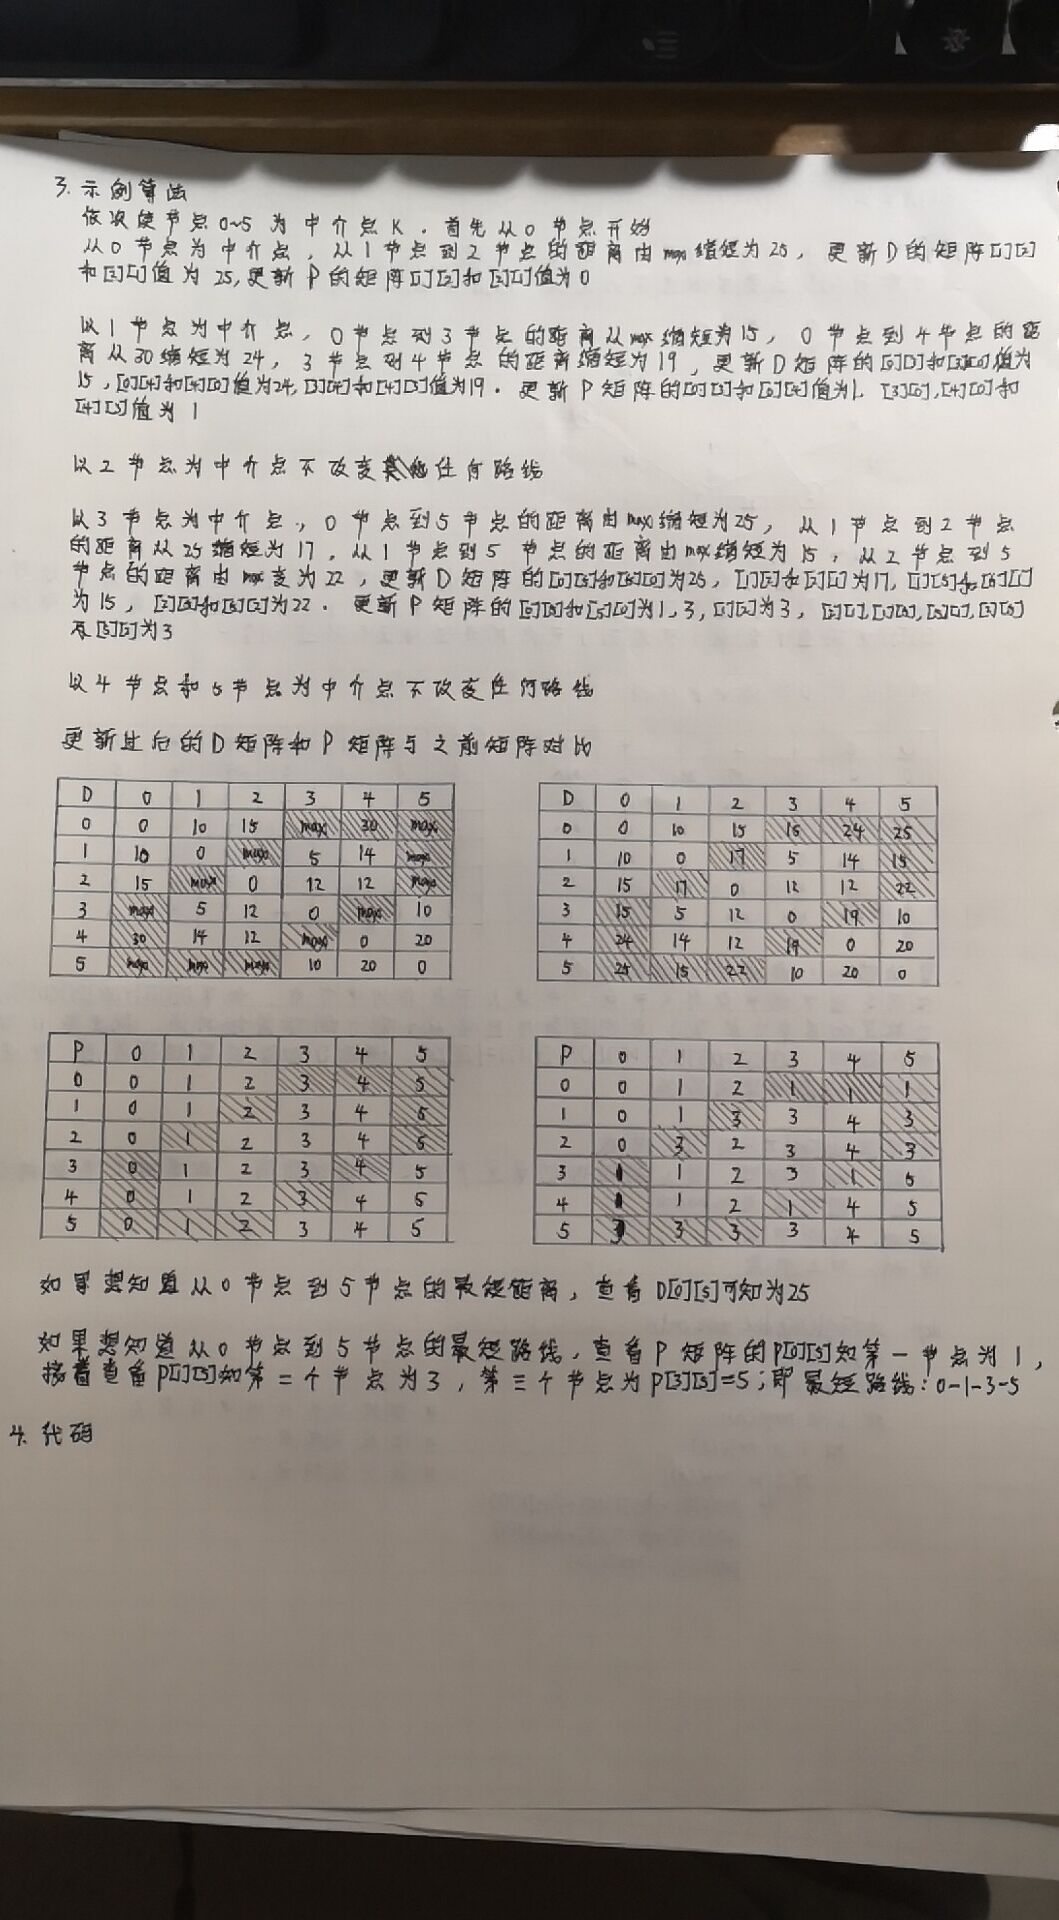 3. 示例算法
依次使节点0~5 为 中介点 K . 首先从0 节点开始
从0 节点为中介点 , 从1节点到2节点的距离由max缩短为25, 更新D的矩阵[1][2]
和[2][1]值为 25,更新 P的矩阵[1][2]和[2][1]值为0
以1节点为中介点, 0节点到3节点的距离从max缩短为15, 0节点到4节点的距
离从30缩短为24, 3节点到4节点的距离缩短为19, 更新D矩阵的[0][3]和[3][0]值为
15,[0][4]和[4][0]值为24,[3][4]和[4][3]值为19. 更新P矩阵的[0][3]和[0][4]值为1. [3][0],[4][0]和
[4][3]值为 1
以2节点为中介点不改变任何路线
以3节点为中介点, 0节点到5节点的距离由max缩短为25, 从1节点到2节点
的距离从25缩短为17, 从1节点到5节点的距离由max缩短为15, 从2节点到5
节点的距离由max变为22, 更新D矩阵的[0][5]和[5][0]为25, [1][2]和[2][1]为17, [1][5]和[5][1]
为15, [2][5]和[5][2]为22. 更新P矩阵的[0][5]和[5][0]为1,3, [1][2]为3, [2][1],[1][5],[5][1],[2][5]
及[5][2]为3
以4节点和5节点为中介点不改变任何路线
更新过后的D矩阵和P矩阵与之前矩阵对比
D 0 1 2 3 4 5
0 0 10 15 max 30 max
1 10 0 max 5 14 max
2 15 max 0 12 12 max
3 max 5 12 0 max 10
4 30 14 12 max 0 20
5 max max max 10 20 0
D 0 1 2 3 4 5
0 0 10 15 15 24 25
1 10 0 17 5 14 15
2 15 17 0 12 12 22
3 15 5 12 0 19 10
4 24 14 12 19 0 20
5 25 15 22 10 20 0
P 0 1 2 3 4 5
0 0 1 2 3 4 5
1 0 1 2 3 4 5
2 0 1 2 3 4 5
3 0 1 2 3 4 5
4 0 1 2 3 4 5
5 0 1 2 3 4 5
P 0 1 2 3 4 5
0 0 1 2 1 1 1
1 0 1 3 3 4 3
2 0 3 2 3 4 3
3 1 1 2 3 1 5
4 1 1 2 1 4 5
5 3 3 3 3 4 5
如果想知道从0节点到5节点的最短距离, 查看D[0][5]可知为25
如果想知道从0节点到5节点的最短路线, 查看P矩阵的P[0][5]知第一节点为1,
接着查看P[1][5]知第二个节点为3, 第三个节点为P[3][5]=5;即最短路线:0-1-3-5
4. 代码